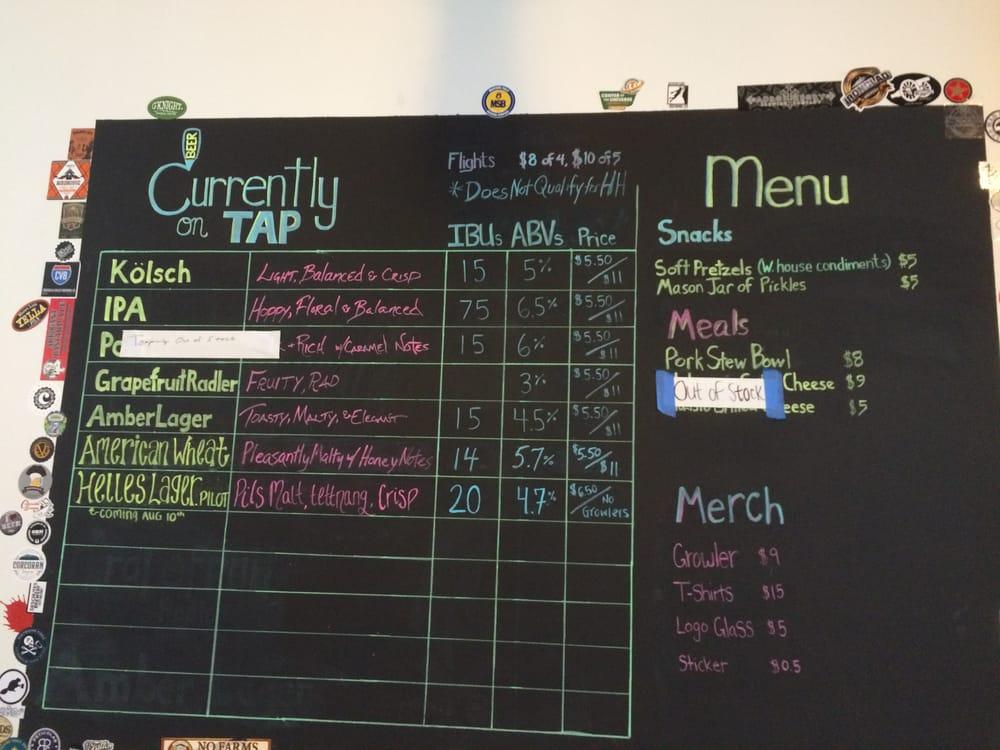 GKNIGHT
MSB
BEER
Currently
on TAP
Flights $8 of 4, $10 of 5
*Does Not Qualify for HH
IBUs ABVs Price
Kölsch Light, Balanced & Crisp 15 5% $5.50/$11
IPA Hoppy, Floral & Balanced 75 6.5% $5.50/$11
Po Temporarily Out of Stock + Rich w/Caramel Notes 15 6% $5.50/$11
Grapefruit Radler Fruity, Rad 3% $5.50/$11
Amber Lager Toasty, Malty, & Elegant 15 4.5% $5.50/$11
American Wheat Pleasantly Malty w/ Honey Notes 14 5.7% $5.50/$11
Helles Lager.PILOT Pils Malt, tettnang, Crisp 20 4.7% $6.50/No Growlers
coming AUG 10th
Menu
Snacks
Soft Pretzels (W. house condiments) $5
Mason Jar of Pickles $5
Meals
Pork Stew Bowl $8
Out of Stock Cheese $9
eese $5
Merch
Growler $9
T-Shirts $15
Logo Glass $5
Sticker $0.5
CVB
YELLA
CORCORAN
NO FARMS